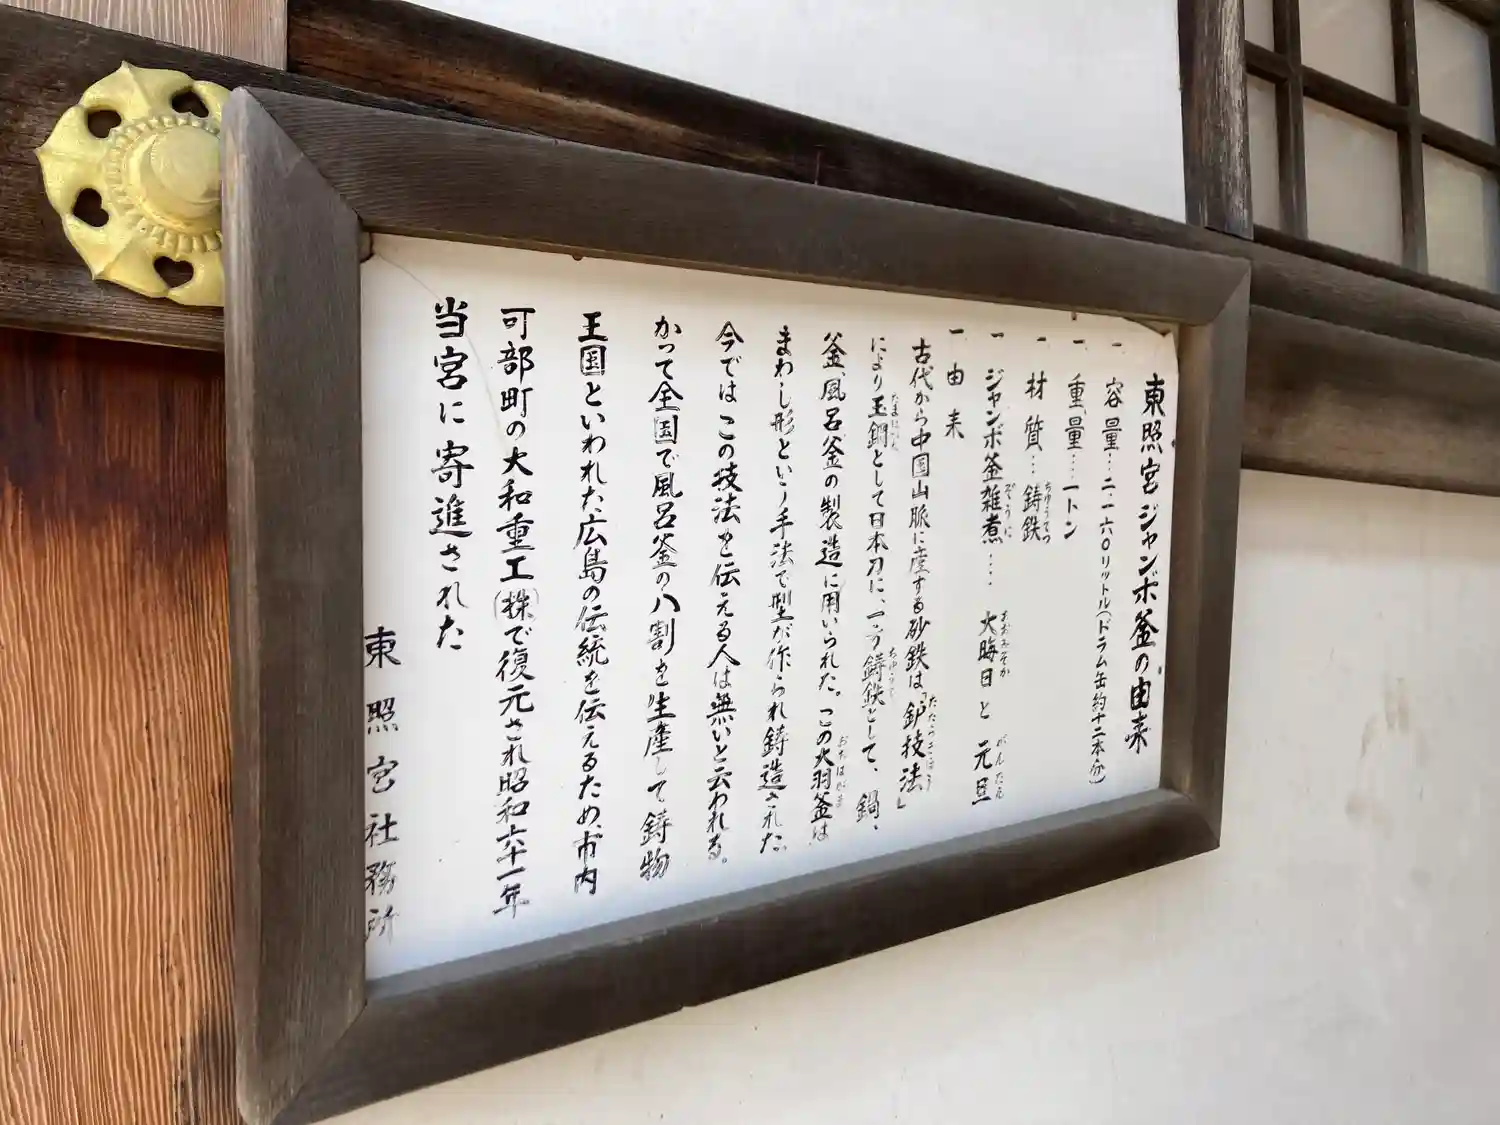 東照宮ジャンボ釜の由来
一 容量…二、一六〇リットル(ドラム缶約十二本分)
一 重量…一トン
一 材質…鋳鉄
ちゅうてつ
一 ジャンボ釜雑煮…… 大晦日と元旦
ぞうに おおみそか がんたん
一 由来
古代から中国山脈に産する砂鉄は「鈩技法」
たたらぎほう
により玉鋼として日本刀に、一つ鋳鉄として、鍋、
たまはがね ちゅうてつ
釜、風呂釜の製造に用いられた。この大羽釜は、
おおはがま
まわし形という手法で型が作られ鋳造された。
今ではこの技法を伝える人は無いと云われる。
かつて全国で風呂釜の八割を生産して鋳物
王国といわれた広島の伝統を伝えるため、市内
可部町の大和重工(株)で復元され昭和六十一年
当宮に寄進された
東照宮社務所